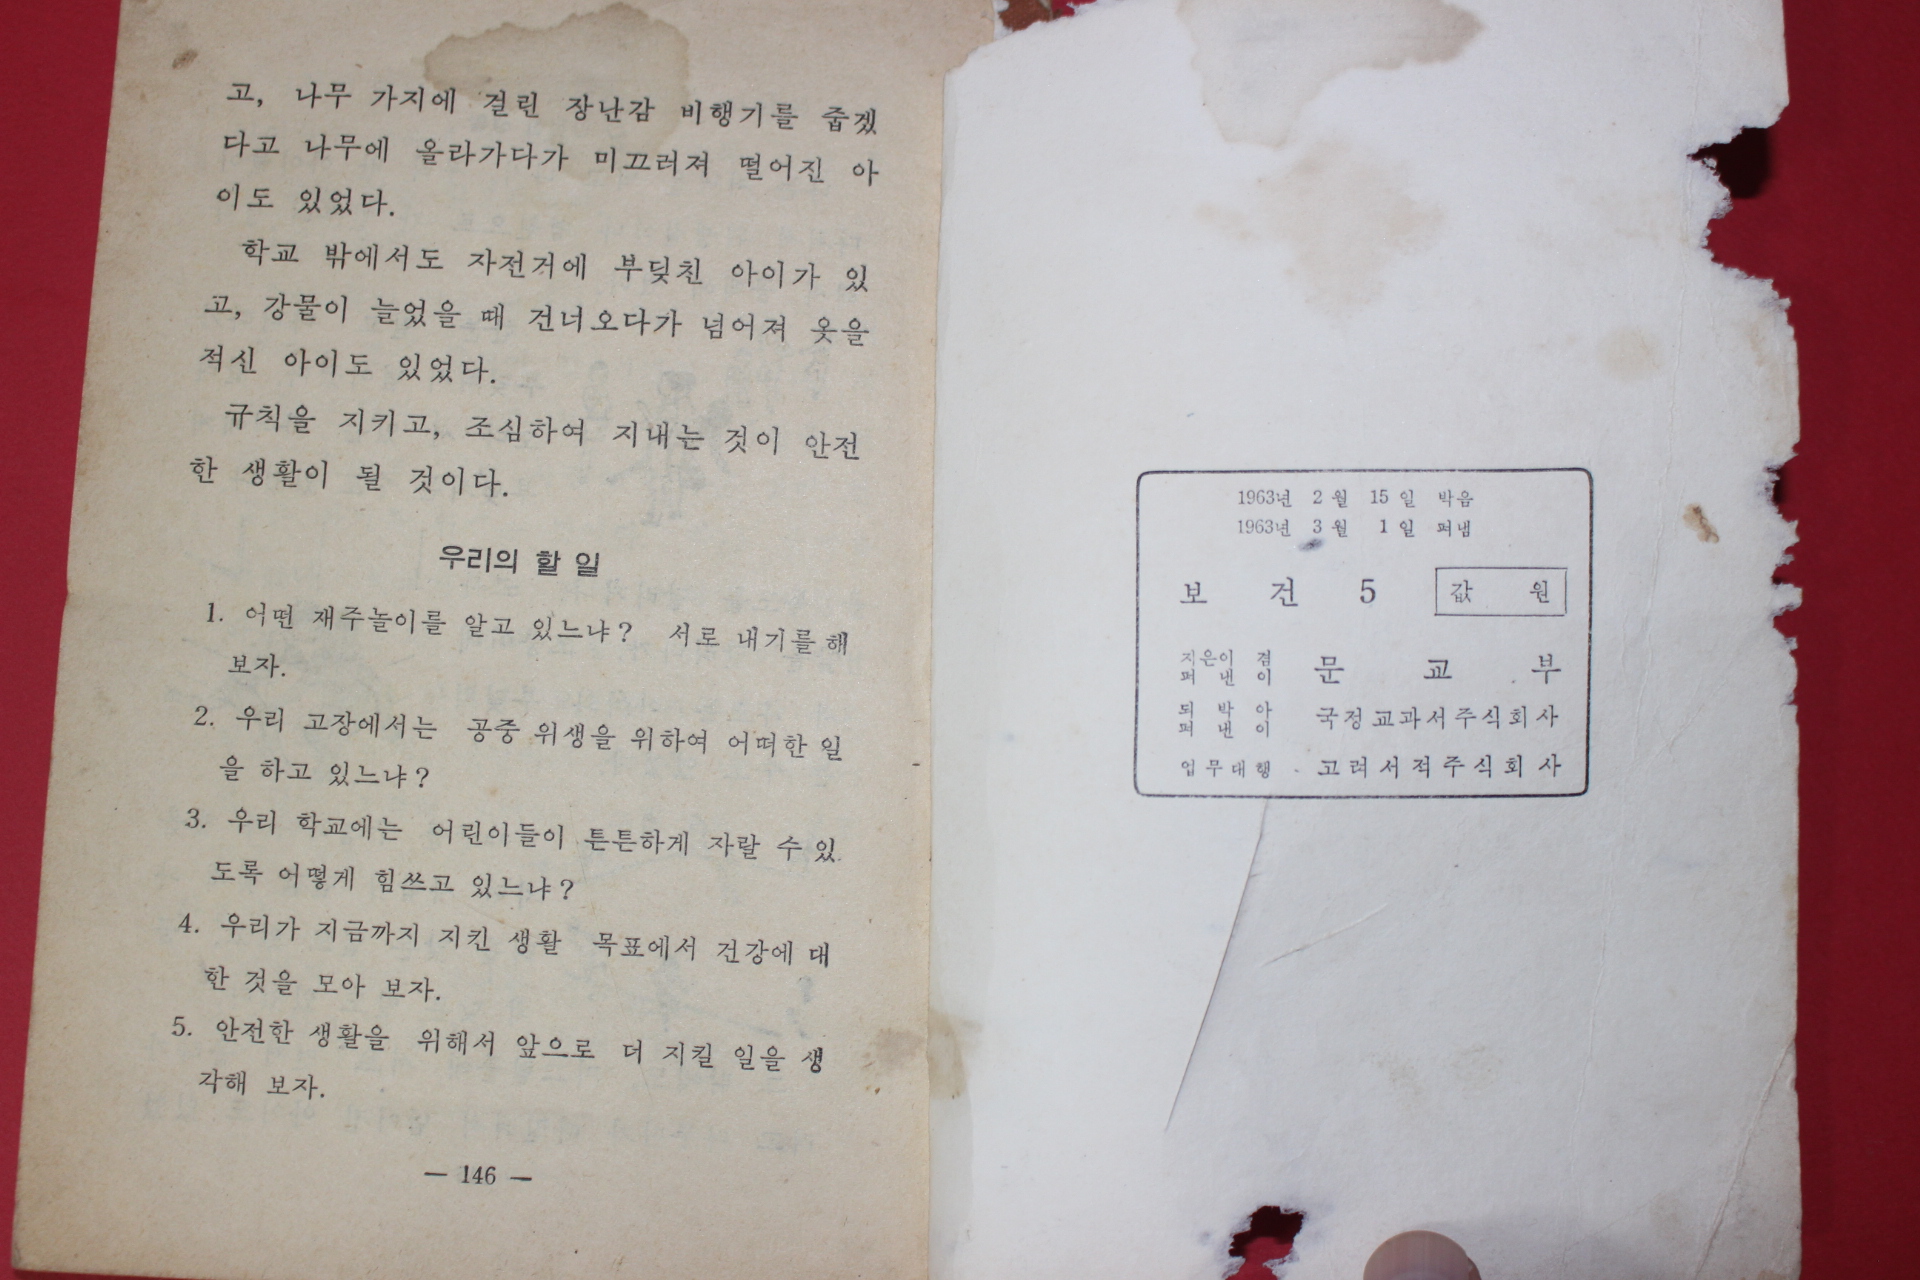 고, 나무 가지에 걸린 장난감 비행기를 줍겠
다고 나무에 올라가다가 미끄러져 떨어진 아
이도 있었다.
학교 밖에서도 자전거에 부딪친 아이가 있
고, 강물이 늘었을 때 건너오다가 넘어져 옷을
적신 아이도 있었다.
규칙을 지키고, 조심하여 지내는 것이 안전
한 생활이 될 것이다.
우리의 할 일
1. 어떤 재주놀이를 알고 있느냐? 서로 내기를 해
보자.
2. 우리 고장에서는 공중 위생을 위하여 어떠한 일
을 하고 있느냐?
3. 우리 학교에는 어린이들이 튼튼하게 자랄 수 있
도록 어떻게 힘쓰고 있느냐?
4. 우리가 지금까지 지킨 생활 목표에서 건강에 대
한 것을 모아 보자.
5. 안전한 생활을 위해서 앞으로 더 지킬 일을 생
각해 보자.
— 146 —
1963년 2월 15일 박음
1963년 3월 1일 펴냄
보 건 5 값 원
지은이 겸
펴 낸 이 문 교 부
되 박 아
펴 낸 이 국정교과서주식회사
업무대행 고려서적주식회사